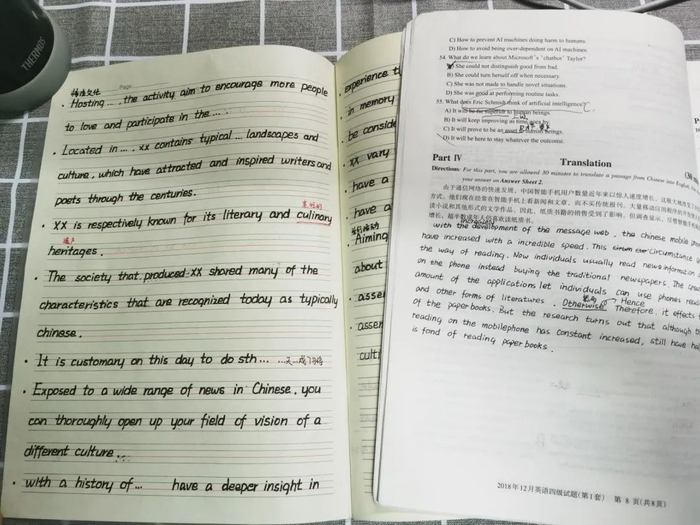 THERMOS
Page
传统文化
· Hosting ..., the activity aim to encourage more people
to love and participate in the ....
· Located in ..., xx contains typical ... landscapes and
culture, which have attracted and inspired writers and
poets through the centuries.
烹饪的
· XX is respectively known for its literary and culinary
遗产
heritages.
· The society that produced XX shared many of the
characteristics that are recognized today as typically
chinese.
· It is customary on this day to do sth... ...天...成了习俗
· Exposed to a wide range of news in Chinese, you
can thoroughly open up your field of vision of a
different culture...
· With a history of... have a deeper insight in
experience t
in memory
be consid
xx vary
have a
have a
Aiming
about
asse
asser
culti
C) How to prevent AI machines doing harm to humans.
D) How to avoid being over-dependent on AI machines.
54. What do we learn about Microsoft's "chatbot" Taylor?
A) She could not distinguish good from bad.
B) She could turn herself off when necessary.
C) She was not made to handle novel situations.
D) She was good at performing routine tasks.
55. What does Eric Schmidt think of artificial intelligence?
A) It will be far superior to human beings.
B) It will keep improving as time goes by.
C) It will prove to be an asset to human beings.
D) It will be here to stay whatever the outcome.
Part IV Translation
Directions: For this part, you are allowed 30 minutes to translate a passage from Chinese into English.
your answer on Answer Sheet 2.
由于通信网络的快速发展，中国智能手机用户数量近年来以惊人速度增长。这极大地改变了
方式。他们现在经常在智能手机上看新闻和文章，而不买传统报刊。大量移动应用程序的开发
读小说和其他形式的文学作品。因此，纸质书籍的销售受到了影响。但调查显示，尽管智能手机
增长，超半数成年人仍喜欢读纸质书。
increasingly
with the development of the message web, the chinese mobile
have increased with a incredible speed. This circumstance
the way of reading. Now individuals usually read news information
on the phone instead buying the traditional newspapers. The
amount of the applications let individuals can use phones
and other forms of literatures. Otherwise Hence Therefore, it effects
of the paper books. But the research turns out that although
reading on the mobilephone has constant increased, still have
is fond of reading paper books.
2018年12月英语四级试题(第1套) 第 8 页(共8页)